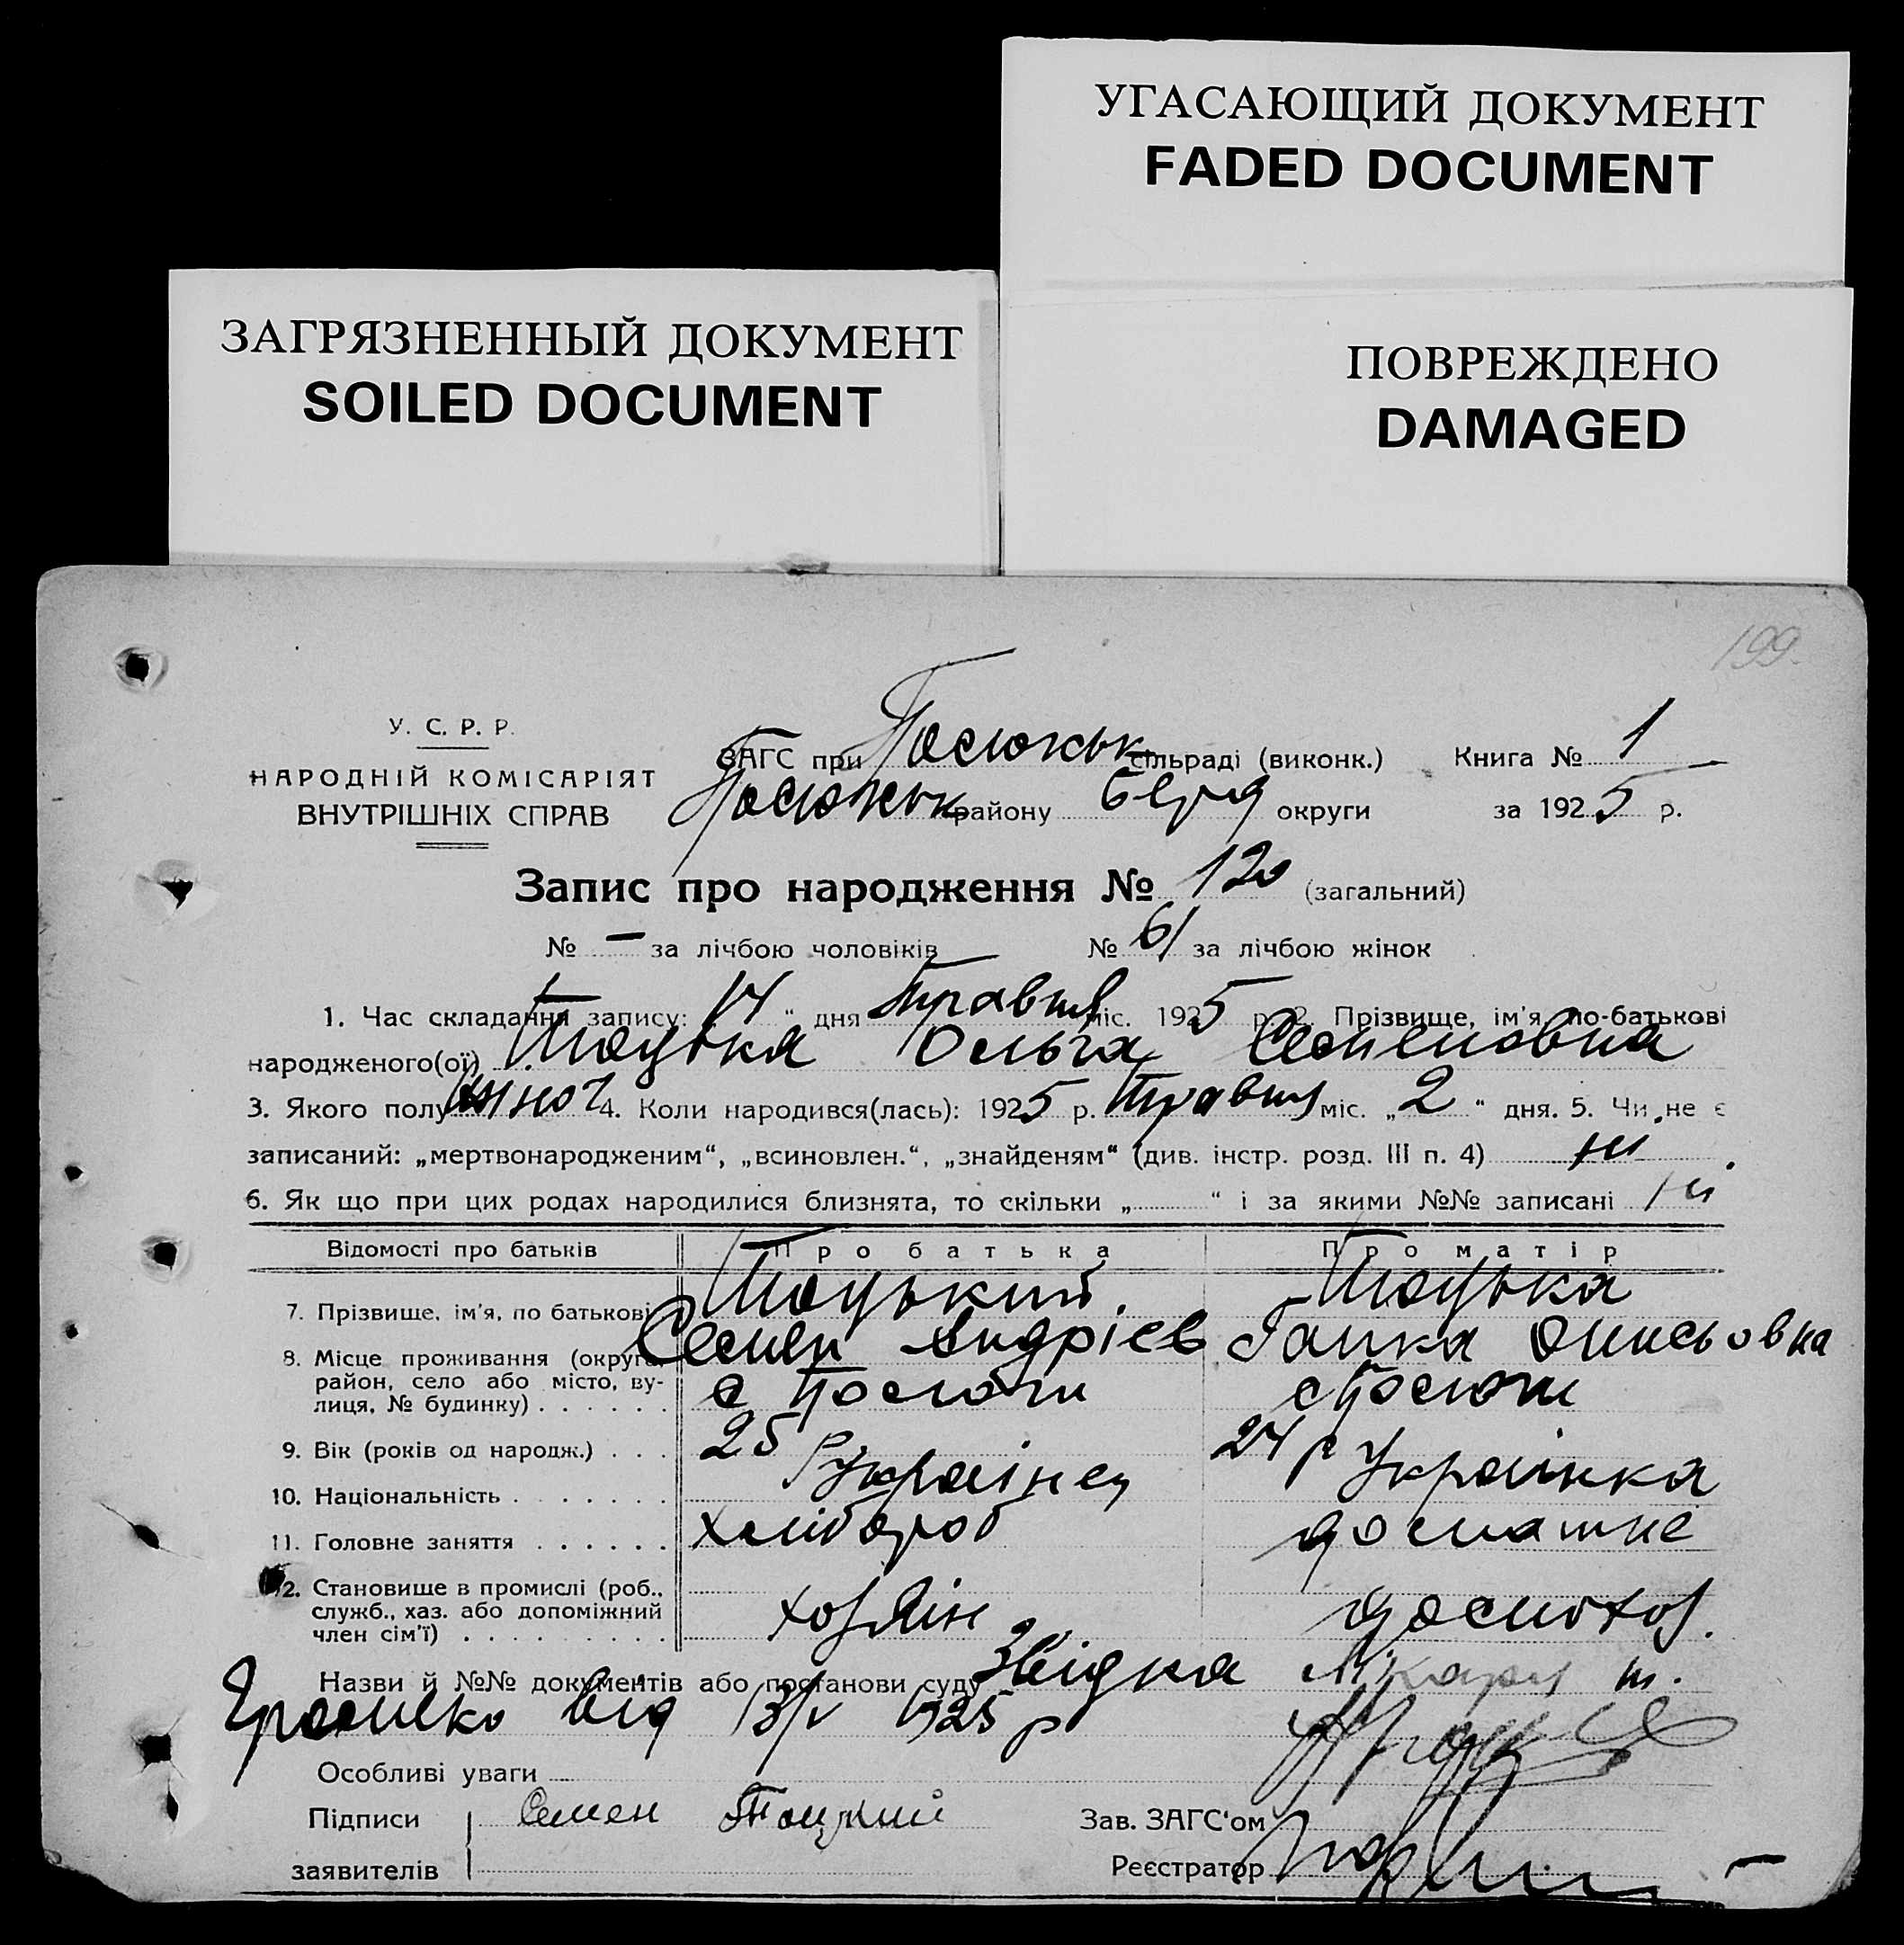 УГАСАЮЩИЙ ДОКУМЕНТ
FADED DOCUMENT
ЗАГРЯЗНЕННЫЙ ДОКУМЕНТ
SOILED DOCUMENT
ПОВРЕЖДЕНО
DAMAGED
199.
У. С. Р. Р.
НАРОДНІЙ КОМІСАРІЯТ
ВНУТРІШНІХ СПРАВ
ЗАГС при сільраді (виконк.) Книга № 1
району Берд округи за 1925 р.
Запис про народження № 120 (загальний)
№ — за лічбою чоловіків № 61 за лічбою жінок
1. Час складання запису: „14“ дня травня міс. 1925 р. 2. Прізвище, ім'я, по-батькові
народженого(ої) Тоцька Ольга Семеновна
3. Якого полу жіноч 4. Коли народився(лась): 1925 р. травня міс. „2“ дня. 5. Чи не є
записаний: „мертвонародженим“, „всиновлен.“, „знайденям“ (див. інстр. розд. III п. 4) ні
6. Як що при цих родах народилися близнята, то скільки „ “ і за якими №№ записані ні
Відомості про батьків Про батька Про матір
7. Прізвище, ім'я, по батькові Тоцький. Тоцька
Семен Андрієв Ганка
8. Місце проживання (округа, район, село або місто, вулиця, № будинку) с с
9. Вік (років од народж.) 25 р 24 р
10. Національність Українец Українка
11. Головне заняття хлібороб домашнє
12. Становище в промислі (роб., служб., хаз. або допоміжний член сім'ї) хозяін домохоз.
Назви й №№ документів або постанови суду Звідка
від 13/V 1925 р
Особливі уваги
Підписи Семен Тоцкий Зав. ЗАГС'ом
заявителів Реєстратор